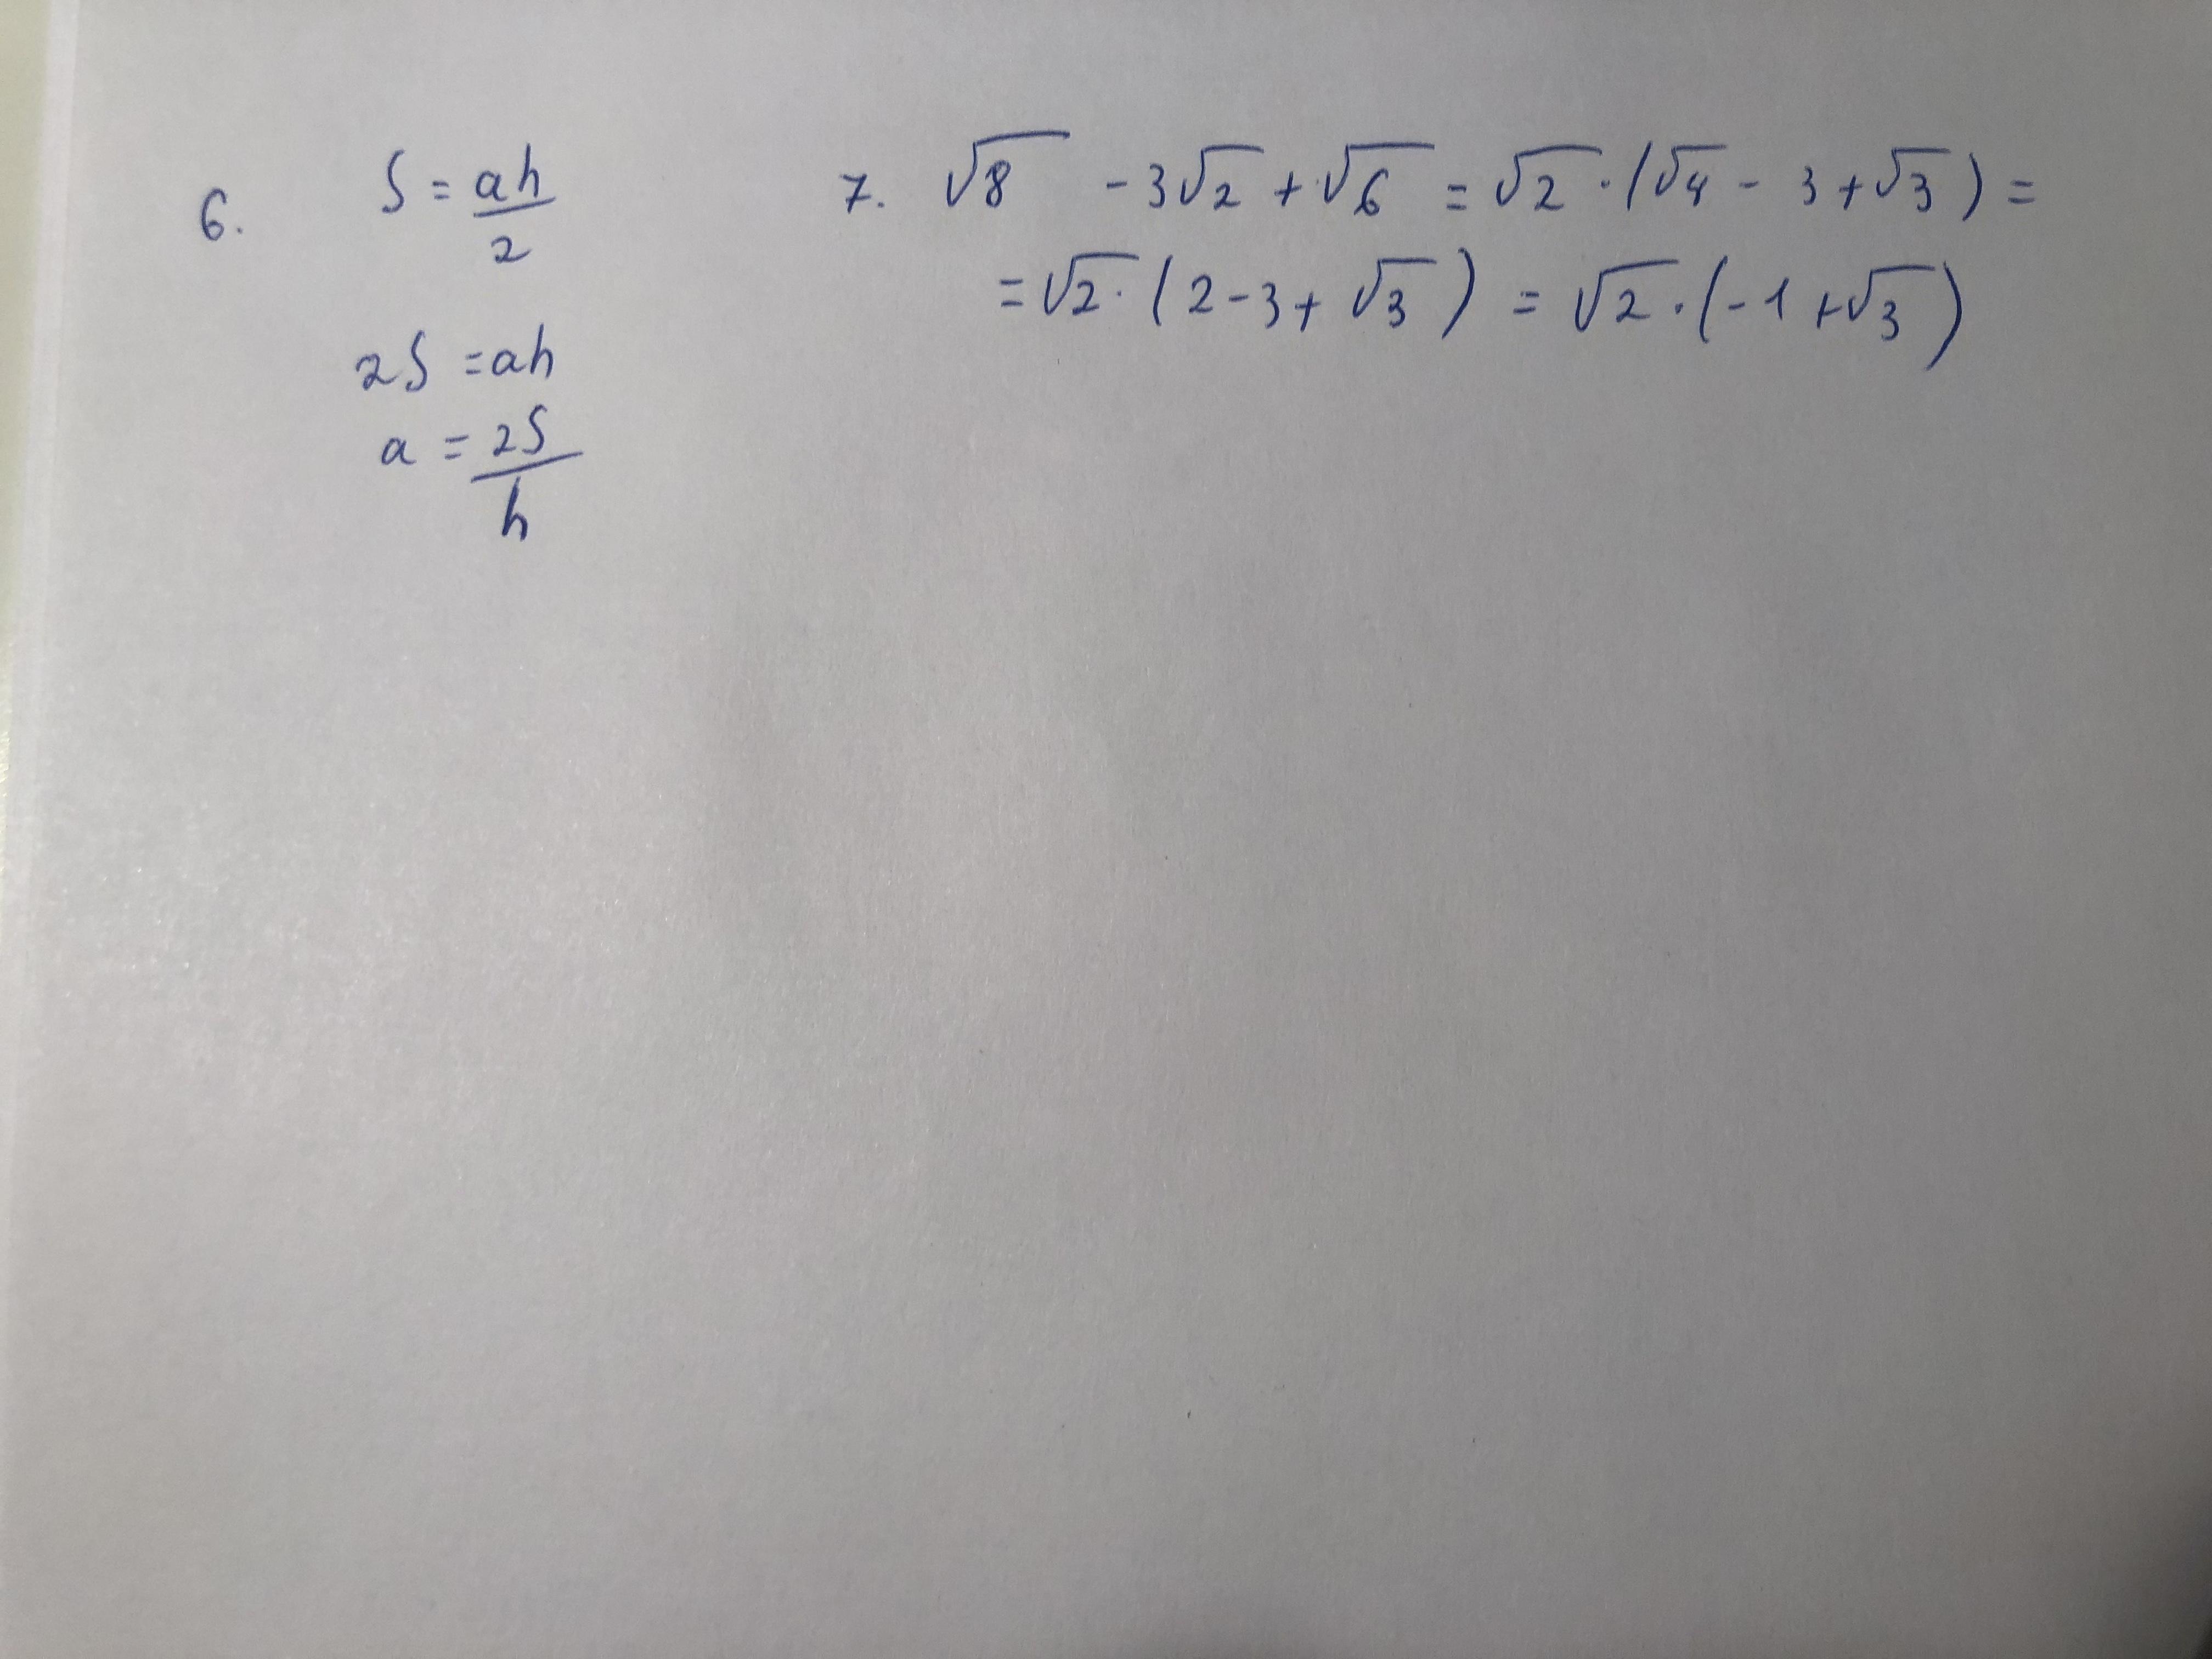 6. S = ah/2
2S = ah
a = 2S/h
7. √8 - 3√2 + √6 = √2 · (√4 - 3 + √3) =
= √2 · (2 - 3 + √3) = √2 · (-1 + √3)